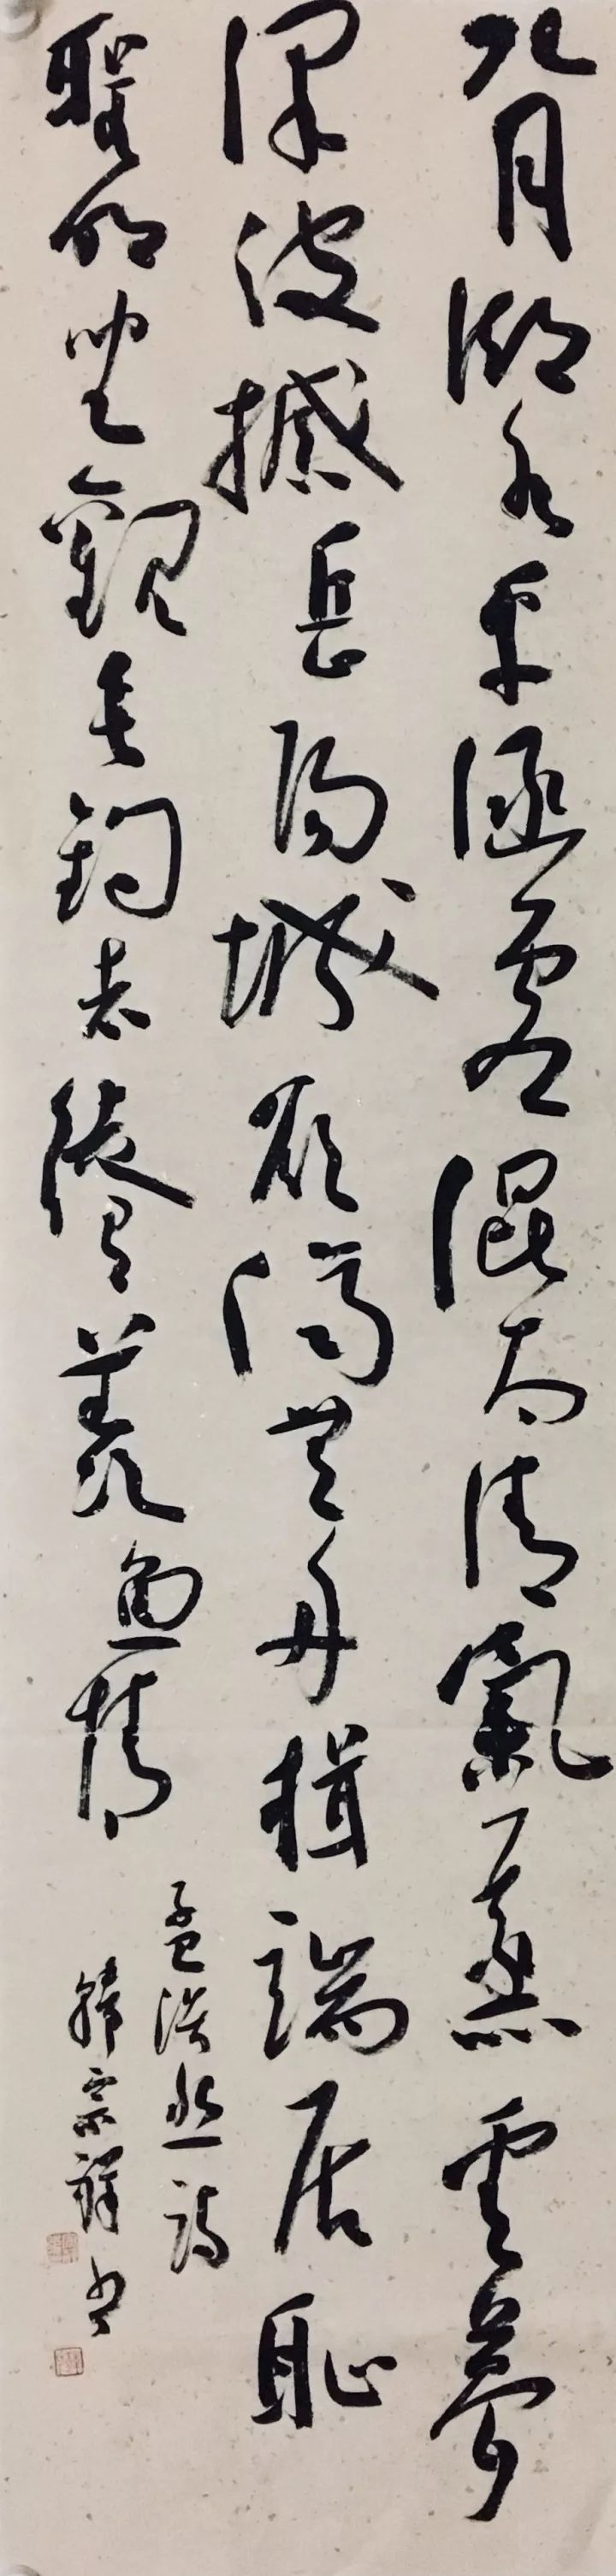 八月湖水平涵虛混太清氣蒸雲夢
澤波撼岳陽城欲濟無舟楫端居恥
聖明坐觀垂釣者徒有羨魚情
孟浩然詩
韓宗祥书